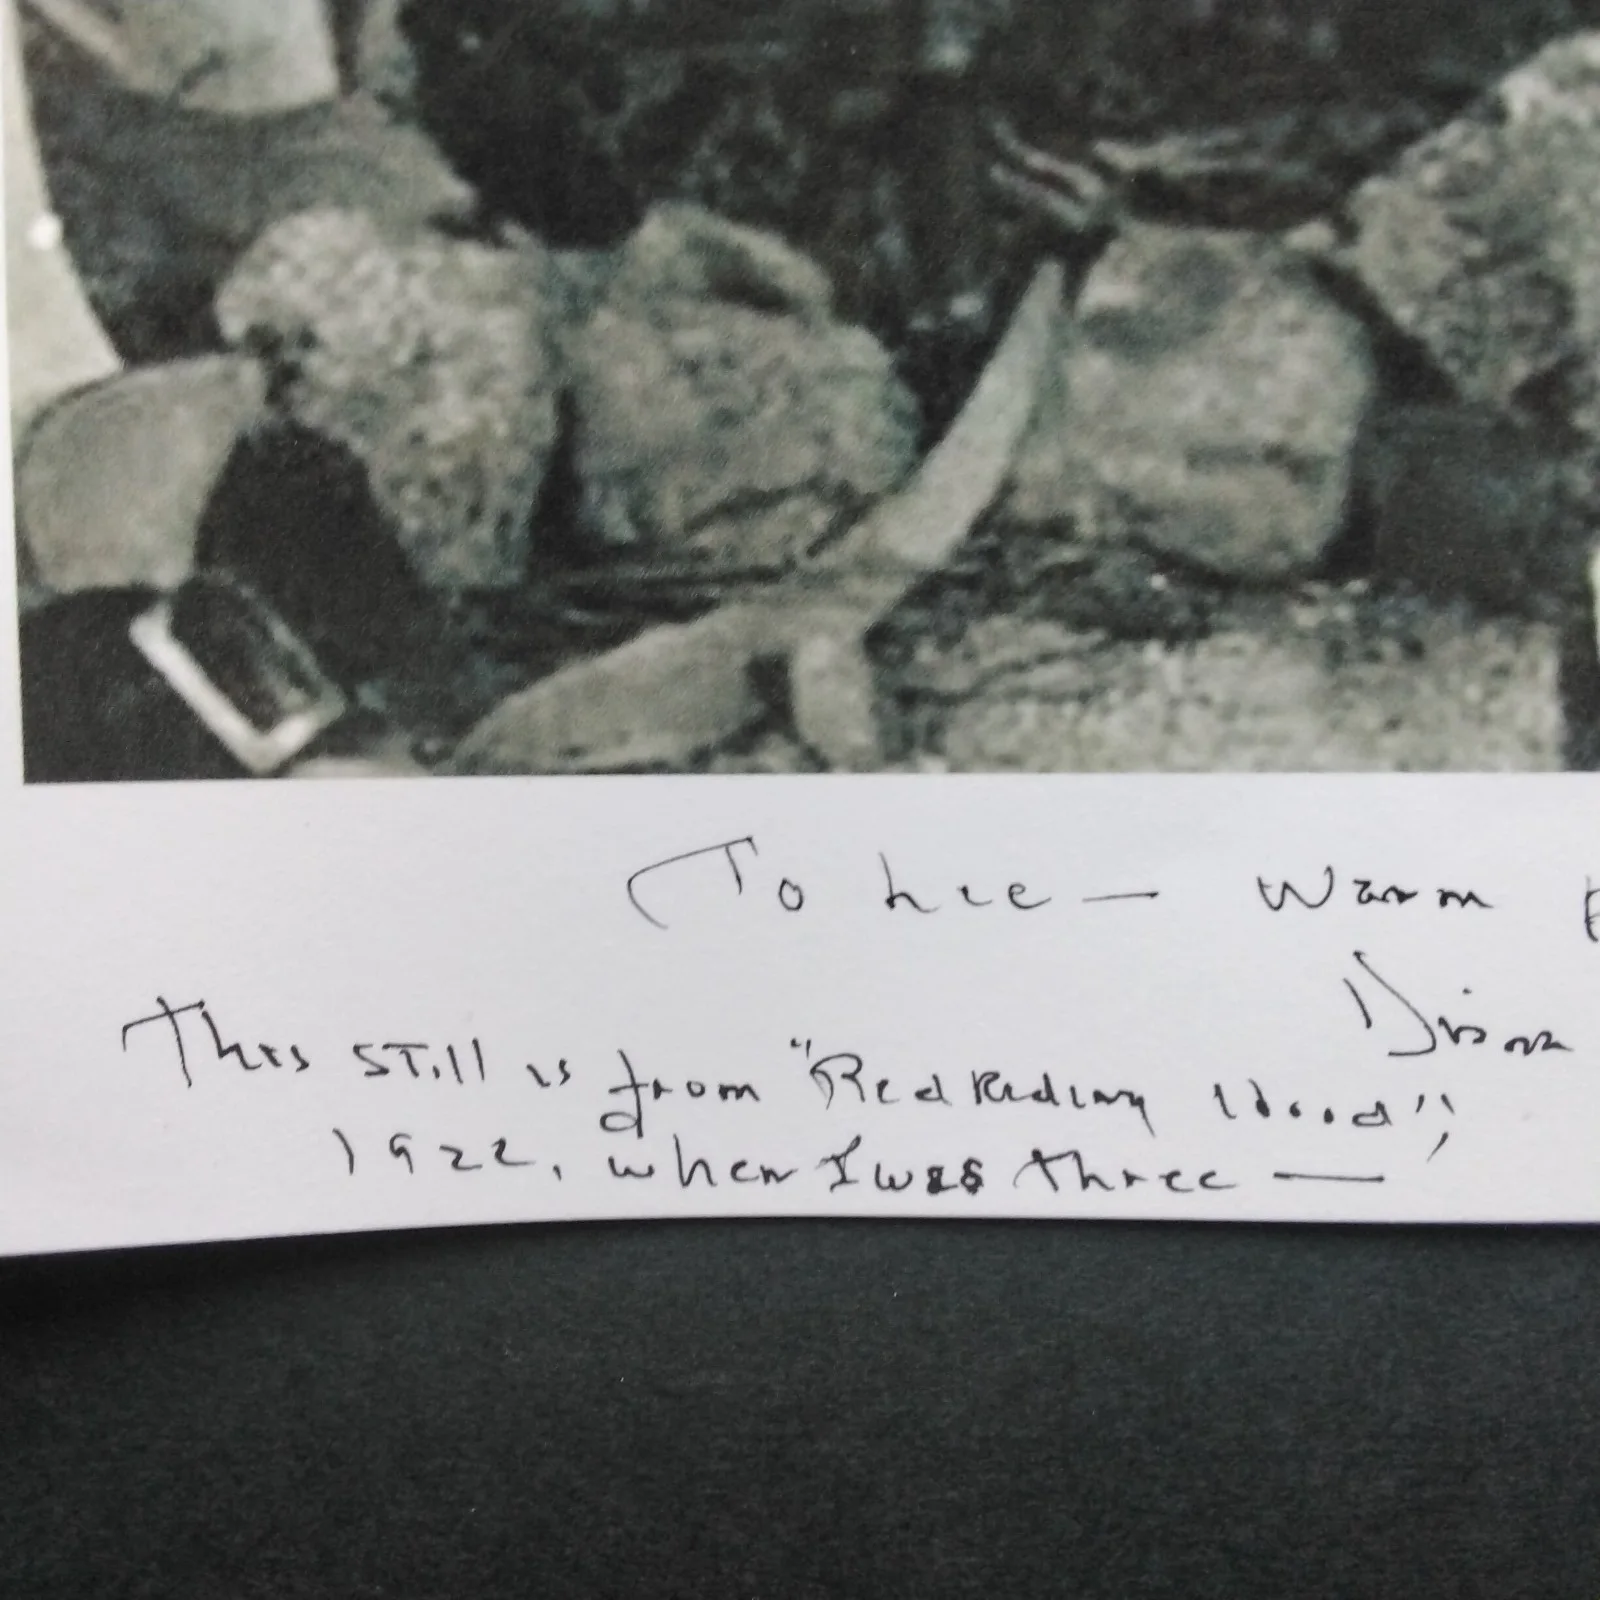 To Lee — Warm
Diana
This still is from "Red Riding Hood",
1922, when I was three —